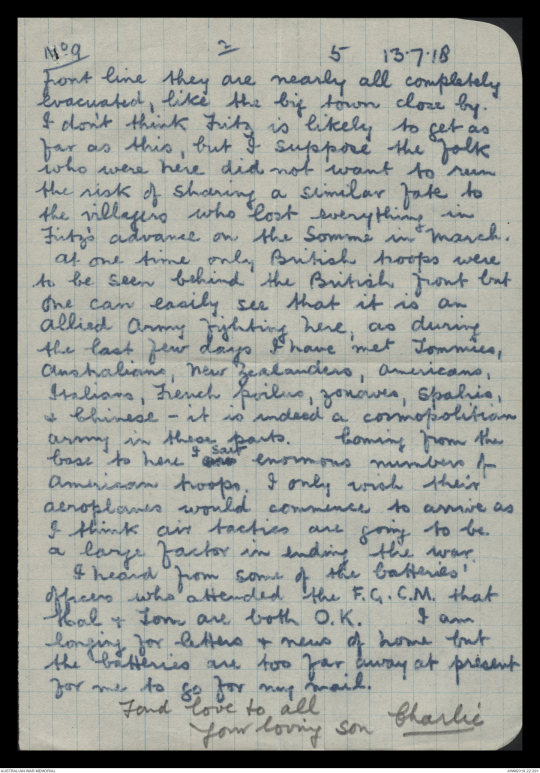 No 9 2 5 13.7.18
front line they are nearly all completely
evacuated, like the big town close by.
I don't think Fritz is likely to get as
far as this, but I suppose the folk
who were here did not want to run
the risk of sharing a similar fate to
the villagers who lost everything in
Fritz's advance on the Somme in March.
At one time only British troops were
to be seen behind the British front but
one can easily see that it is an
Allied Army fighting here, as during
the last few days I have met Tommies,
Australians, New Zealanders, Americans,
Italians, French poilus, zouaves, spahis,
& Chinese - it is indeed a cosmopolitian
army in these parts. Coming from the
base to here I saw enormous numbers of
American troops. I only wish their
aeroplanes would commence to arrive as
I think air tactics are going to be
a large factor in ending the war.
I heard from some of the batteries'
officers who attended the F.G.C.M. that
Hal & Tom are both O.K. I am
longing for letters & news of home but
the batteries are too far away at present
for me to go for my mail.
Fond love to all
Your loving son Charlie
AUSTRALIAN WAR MEMORIAL